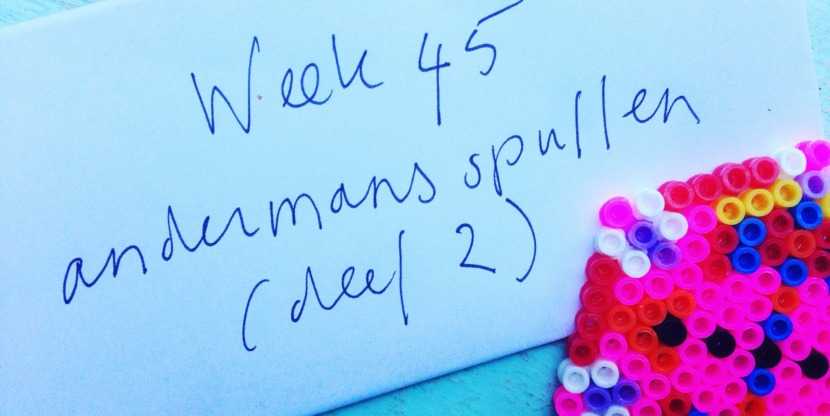 Week 45
andermans spullen
(deel 2)